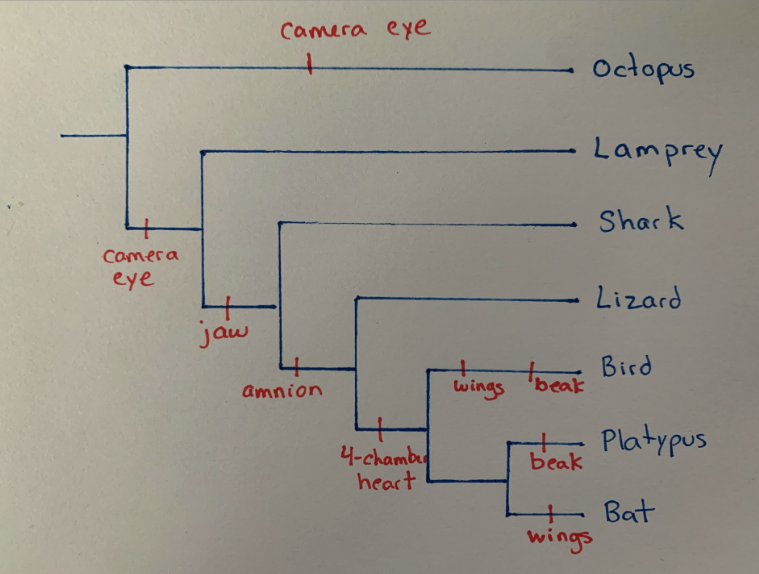 camera eye
Octopus
Lamprey
Shark
camera
eye
Lizard
jaw
Bird
amnion
wings
beak
Platypus
4-chambe
heart
beak
Bat
wings